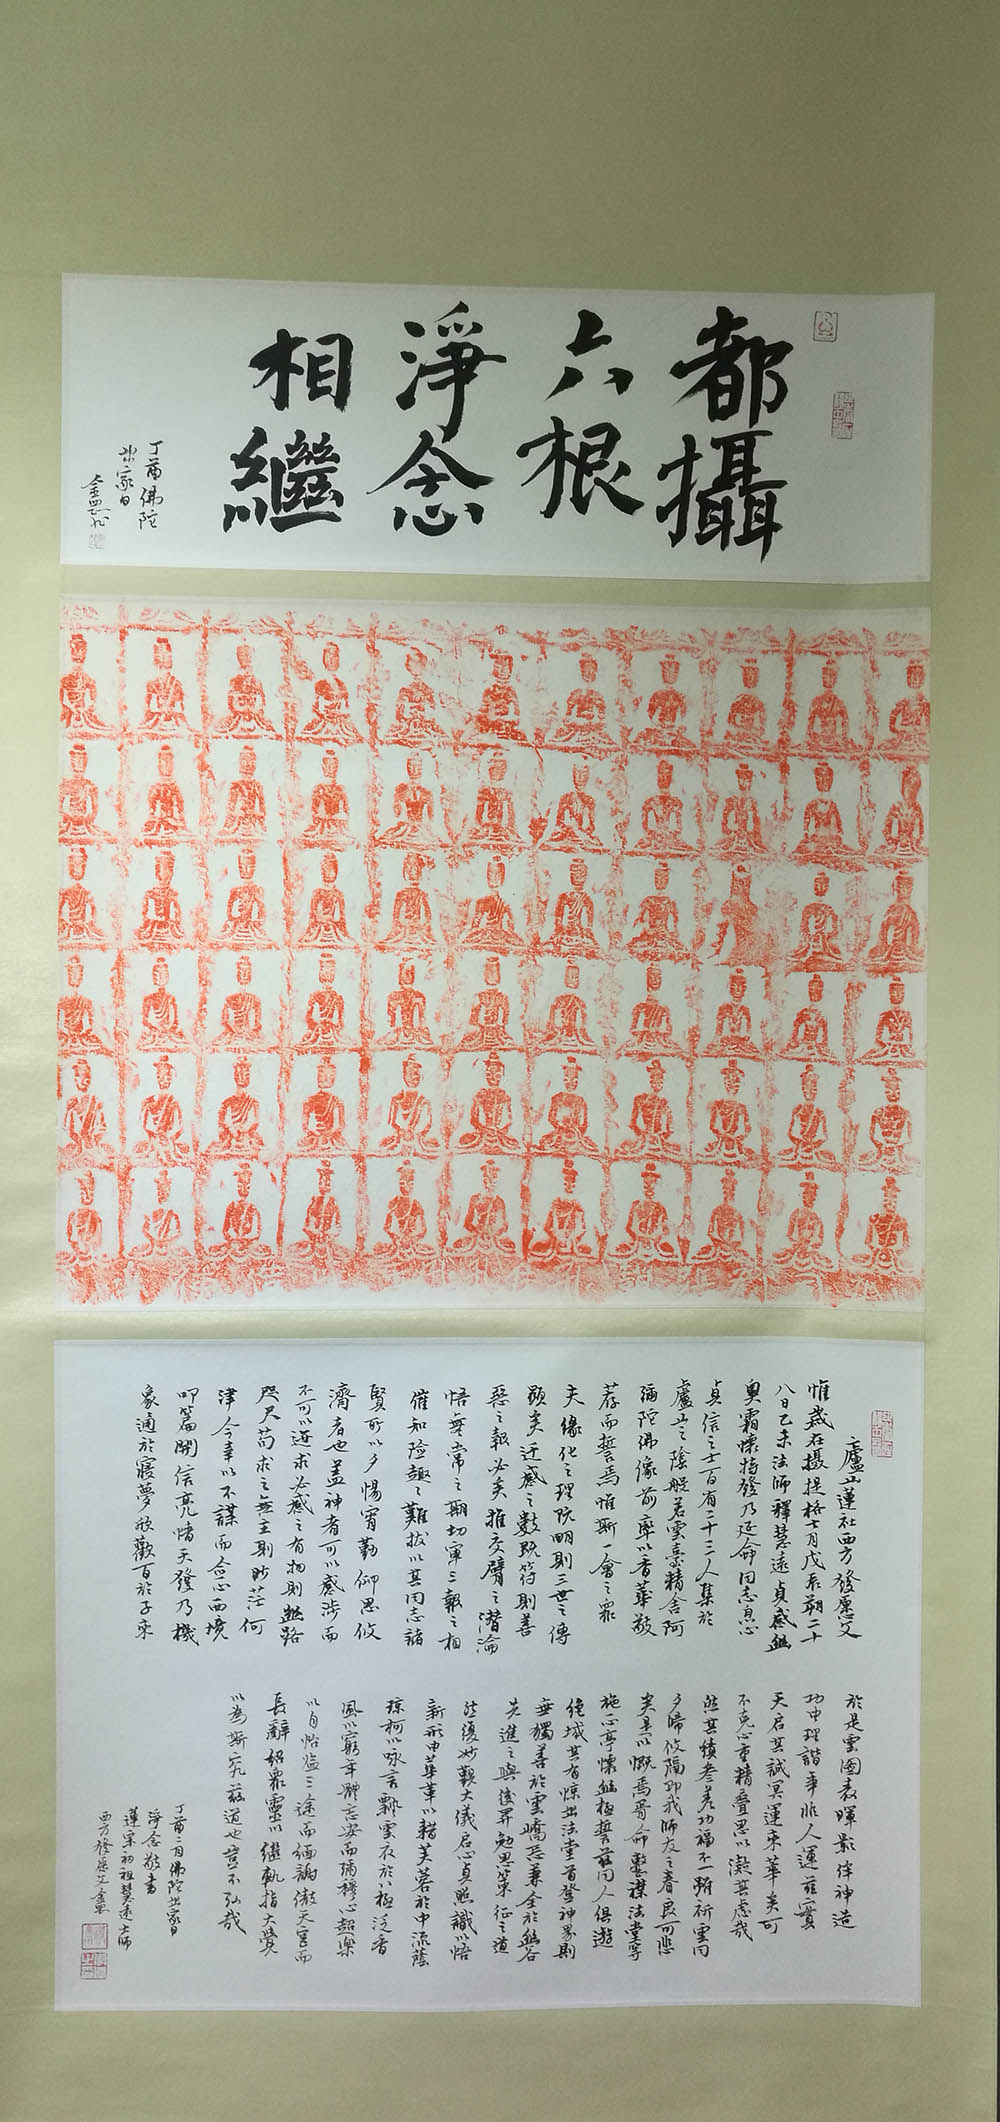 都攝
六根
淨念
相繼
丁酉佛陀
出家日
廬山蓮社西方發愿文
惟歲在攝提格七月戊辰朔二十
八日乙未法師釋慧遠貞感幽
奧霜懷特發乃延命同志息心
貞信之士百有二十三人集於
廬山之陰般若雲臺精舍阿
彌陀佛像前率以香華敬
荐而誓焉惟斯一會之眾
夫緣化之理既明則三世之傳
顯矣迁感之數既符則善
惡之報必矣推交臂之潛淪
悟無常之期切審三報之相
催知險趣之難拔此其同志諸
賢所以夕惕宵勤仰思攸
濟者也蓋神者可以感涉而
不可以迹求必感之有物則幽路
咫尺苟求之無主則眇茫何
津今幸以不謀而僉心西境
叩篇開信亮情天發乃機
象通於寢夢欣歡百於子來
於是雲圖表暉影侔神造
功由理諧事非人運茲實
天启其誠冥運來萃矣可
不克心重精疊思以凝其虑哉
然其績參差功福不一雖祈雲同
夕歸攸隔即我師友之眷良可悲
矣是以慨焉胥命整襟法堂等
施一心亭懷幽極誓茲同人俱遊
絕域其有惊出法堂首登神界則
無獨善於雲嶠忘兼全於幽谷
先進之與後昇勉思策征之道
然後妙觀大儀启心貞照識以悟
新形由華革以藉芙蓉於中流蔭
琼柯以詠言飄雲衣於八極泛香
風以窮年體忘安而彌穆心超樂
以自怡临三途而緬謝傲天宮而
長辭紹眾靈以繼軌指大覺
以為斯究茲道也豈不弘哉
丁酉二月佛陀出家日
淨念敬書
蓮宗初祖慧遠大師
西方發愿文